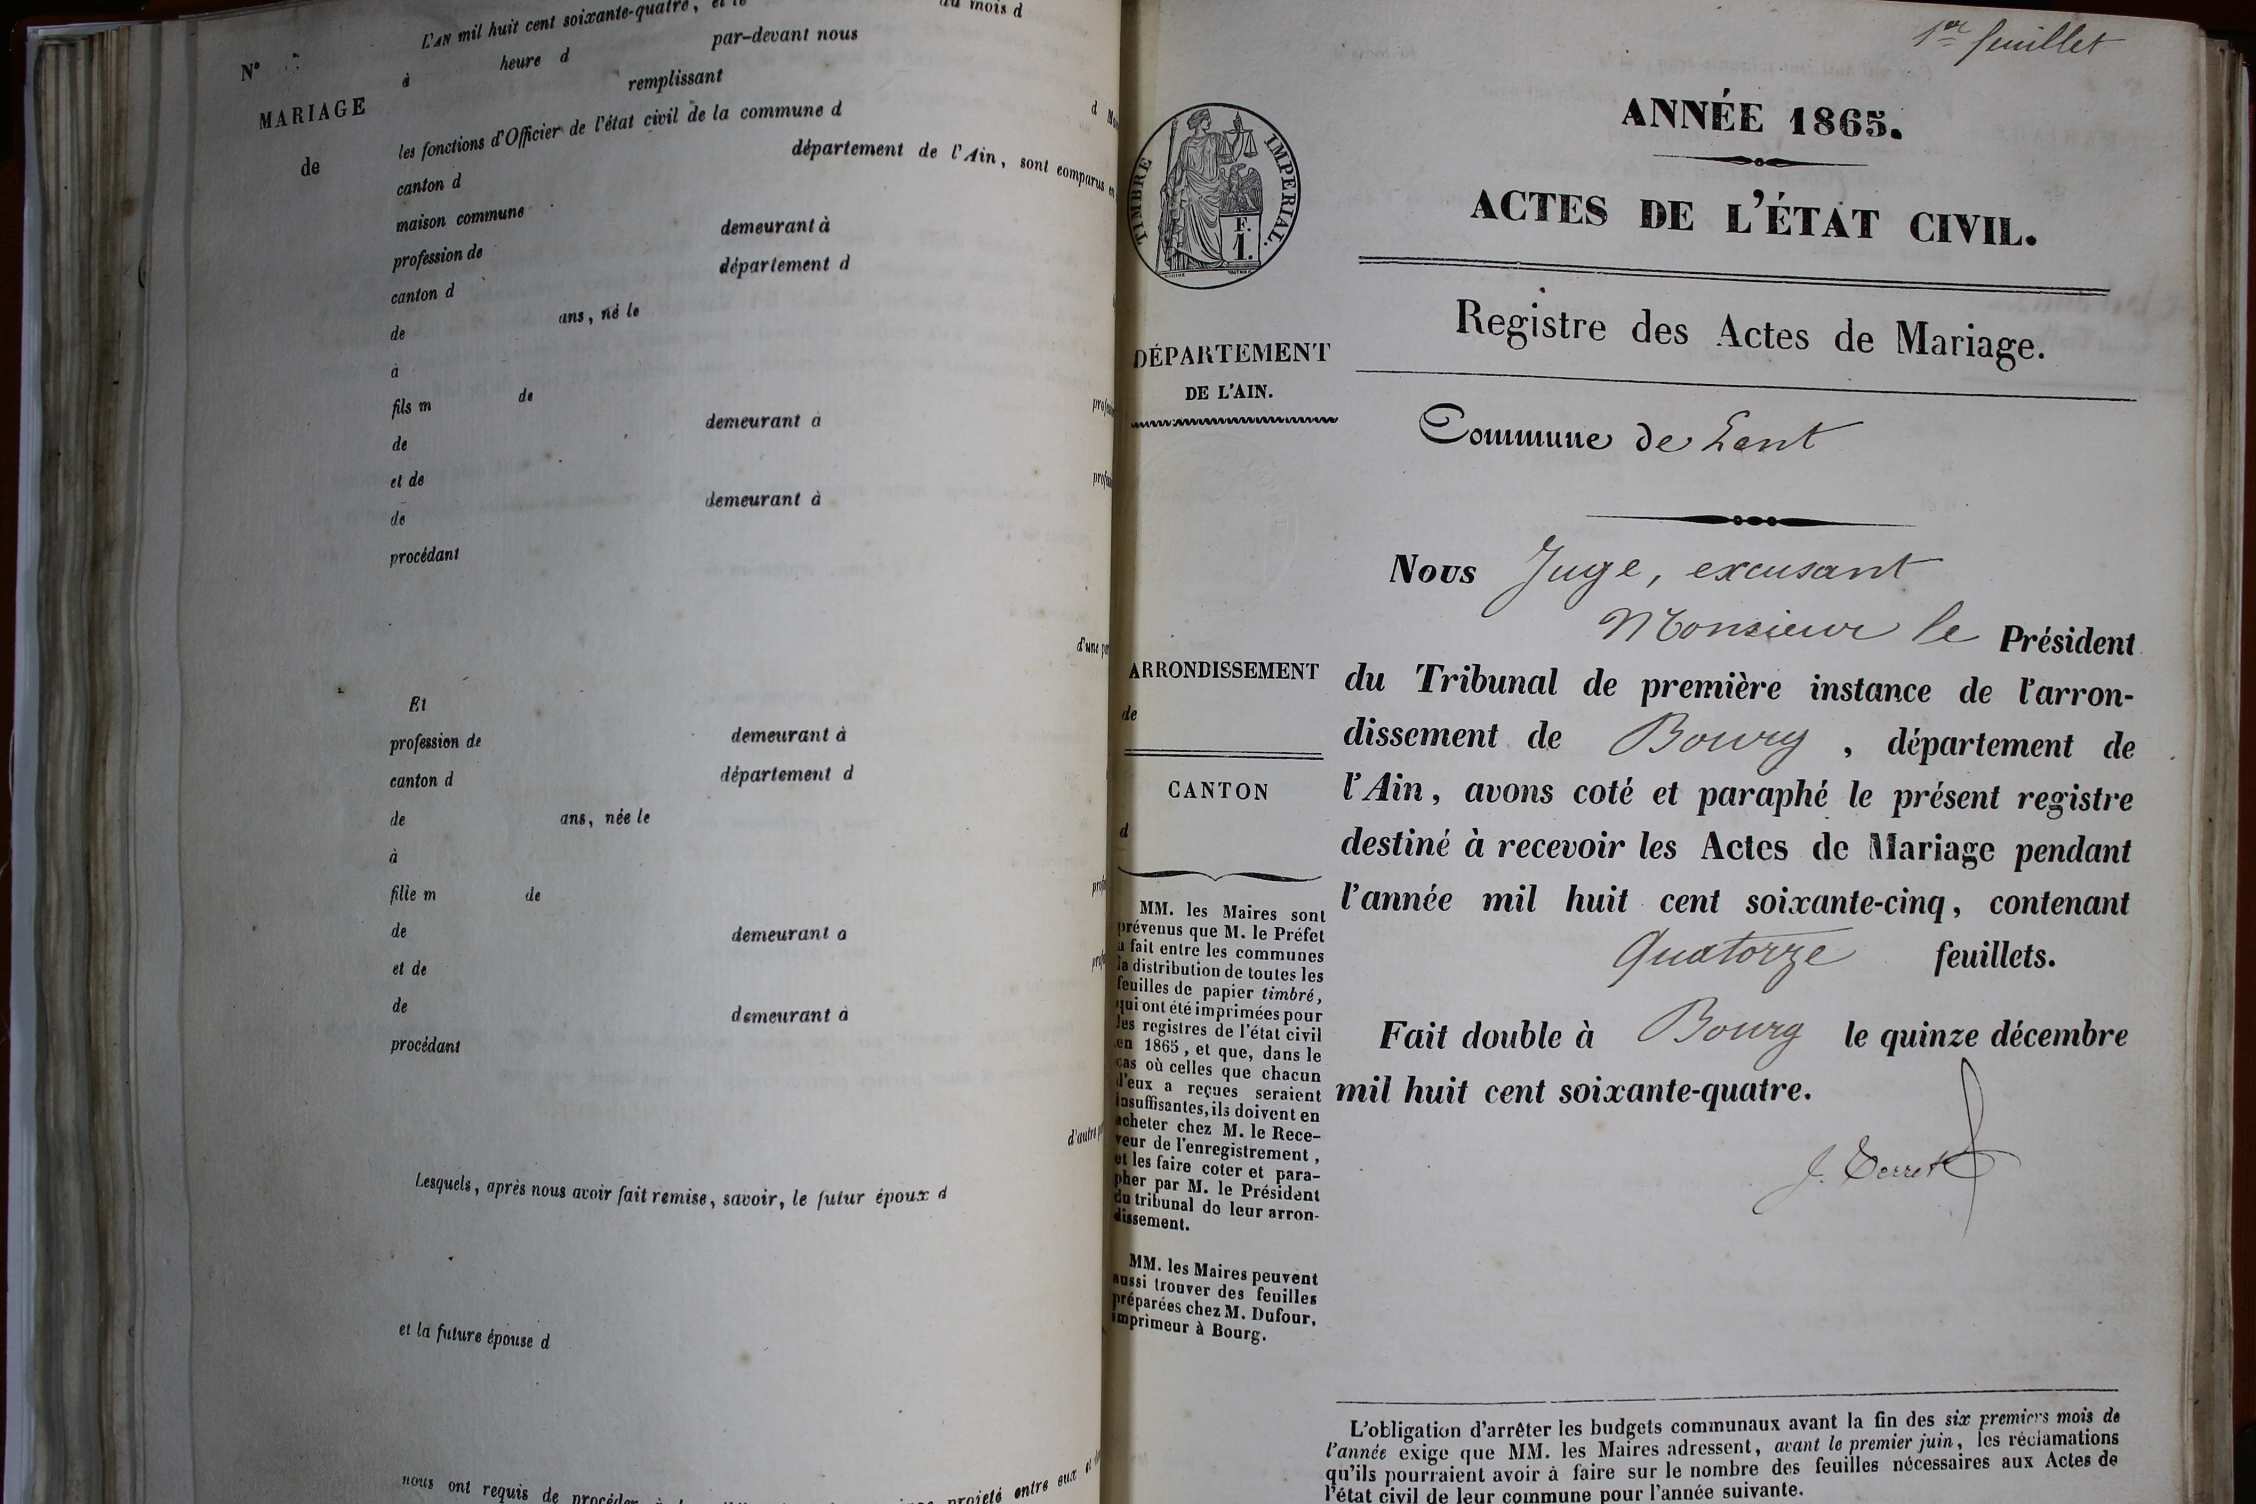 L'AN mil huit cent soixante-quatre, et le du mois d
N° à heure d par-devant nous
remplissant
MARIAGE les fonctions d'Officier de l'état civil de la commune d
de canton d département de l'Ain, sont comparus en
maison commune
profession de demeurant à
canton d département d
de ans, né le
à
fils m de
de demeurant à
et de
de demeurant à
procédant
d'une
Et
profession de demeurant à
canton d département d
de ans, née le
à
fille m de
de demeurant à
et de
de demeurant à
procédant
d'autre
Lesquels, après nous avoir fait remise, savoir, le futur époux d
et la future épouse d
nous ont requis de projeté entre eux
1er feuillet
ANNÉE 1865.
ACTES DE L'ÉTAT CIVIL.
TIMBRE IMPERIAL.
F.
1.
Registre des Actes de Mariage.
DÉPARTEMENT
DE L'AIN.
Commune de Lent
Nous Juge, excusant
Monsieur le Président
du Tribunal de première instance de l'arron-
dissement de Bourg, département de
l'Ain, avons coté et paraphé le présent registre
destiné à recevoir les Actes de Mariage pendant
l'année mil huit cent soixante-cinq, contenant
Quatorze feuillets.
Fait double à Bourg le quinze décembre
mil huit cent soixante-quatre.
ARRONDISSEMENT
de
CANTON
d
MM. les Maires sont
prévenus que M. le Préfet
a fait entre les communes
la distribution de toutes les
feuilles de papier timbré,
qui ont été imprimées pour
les registres de l'état civil
en 1865, et que, dans le
cas où celles que chacun
d'eux a reçues seraient
insuffisantes, ils doivent en
acheter chez M. le Rece-
veur de l'enregistrement,
et les faire coter et para-
pher par M. le Président
du tribunal de leur arron-
dissement.
MM. les Maires peuvent
aussi trouver des feuilles
préparées chez M. Dufour,
imprimeur à Bourg.
L'obligation d'arrêter les budgets communaux avant la fin des six premiers mois de
l'année exige que MM. les Maires adressent, avant le premier juin, les réclamations
qu'ils pourraient avoir à faire sur le nombre des feuilles nécessaires aux Actes de
l'état civil de leur commune pour l'année suivante.